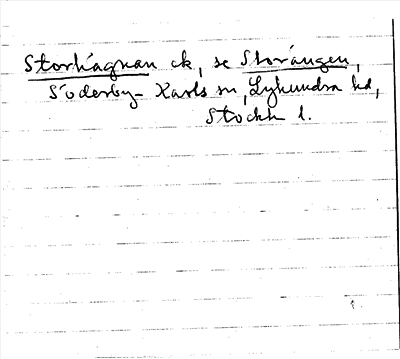 Storhagnan ek, se Storängen,
Söderby-Karls sn, Lyhundra hd,
Stockh l.